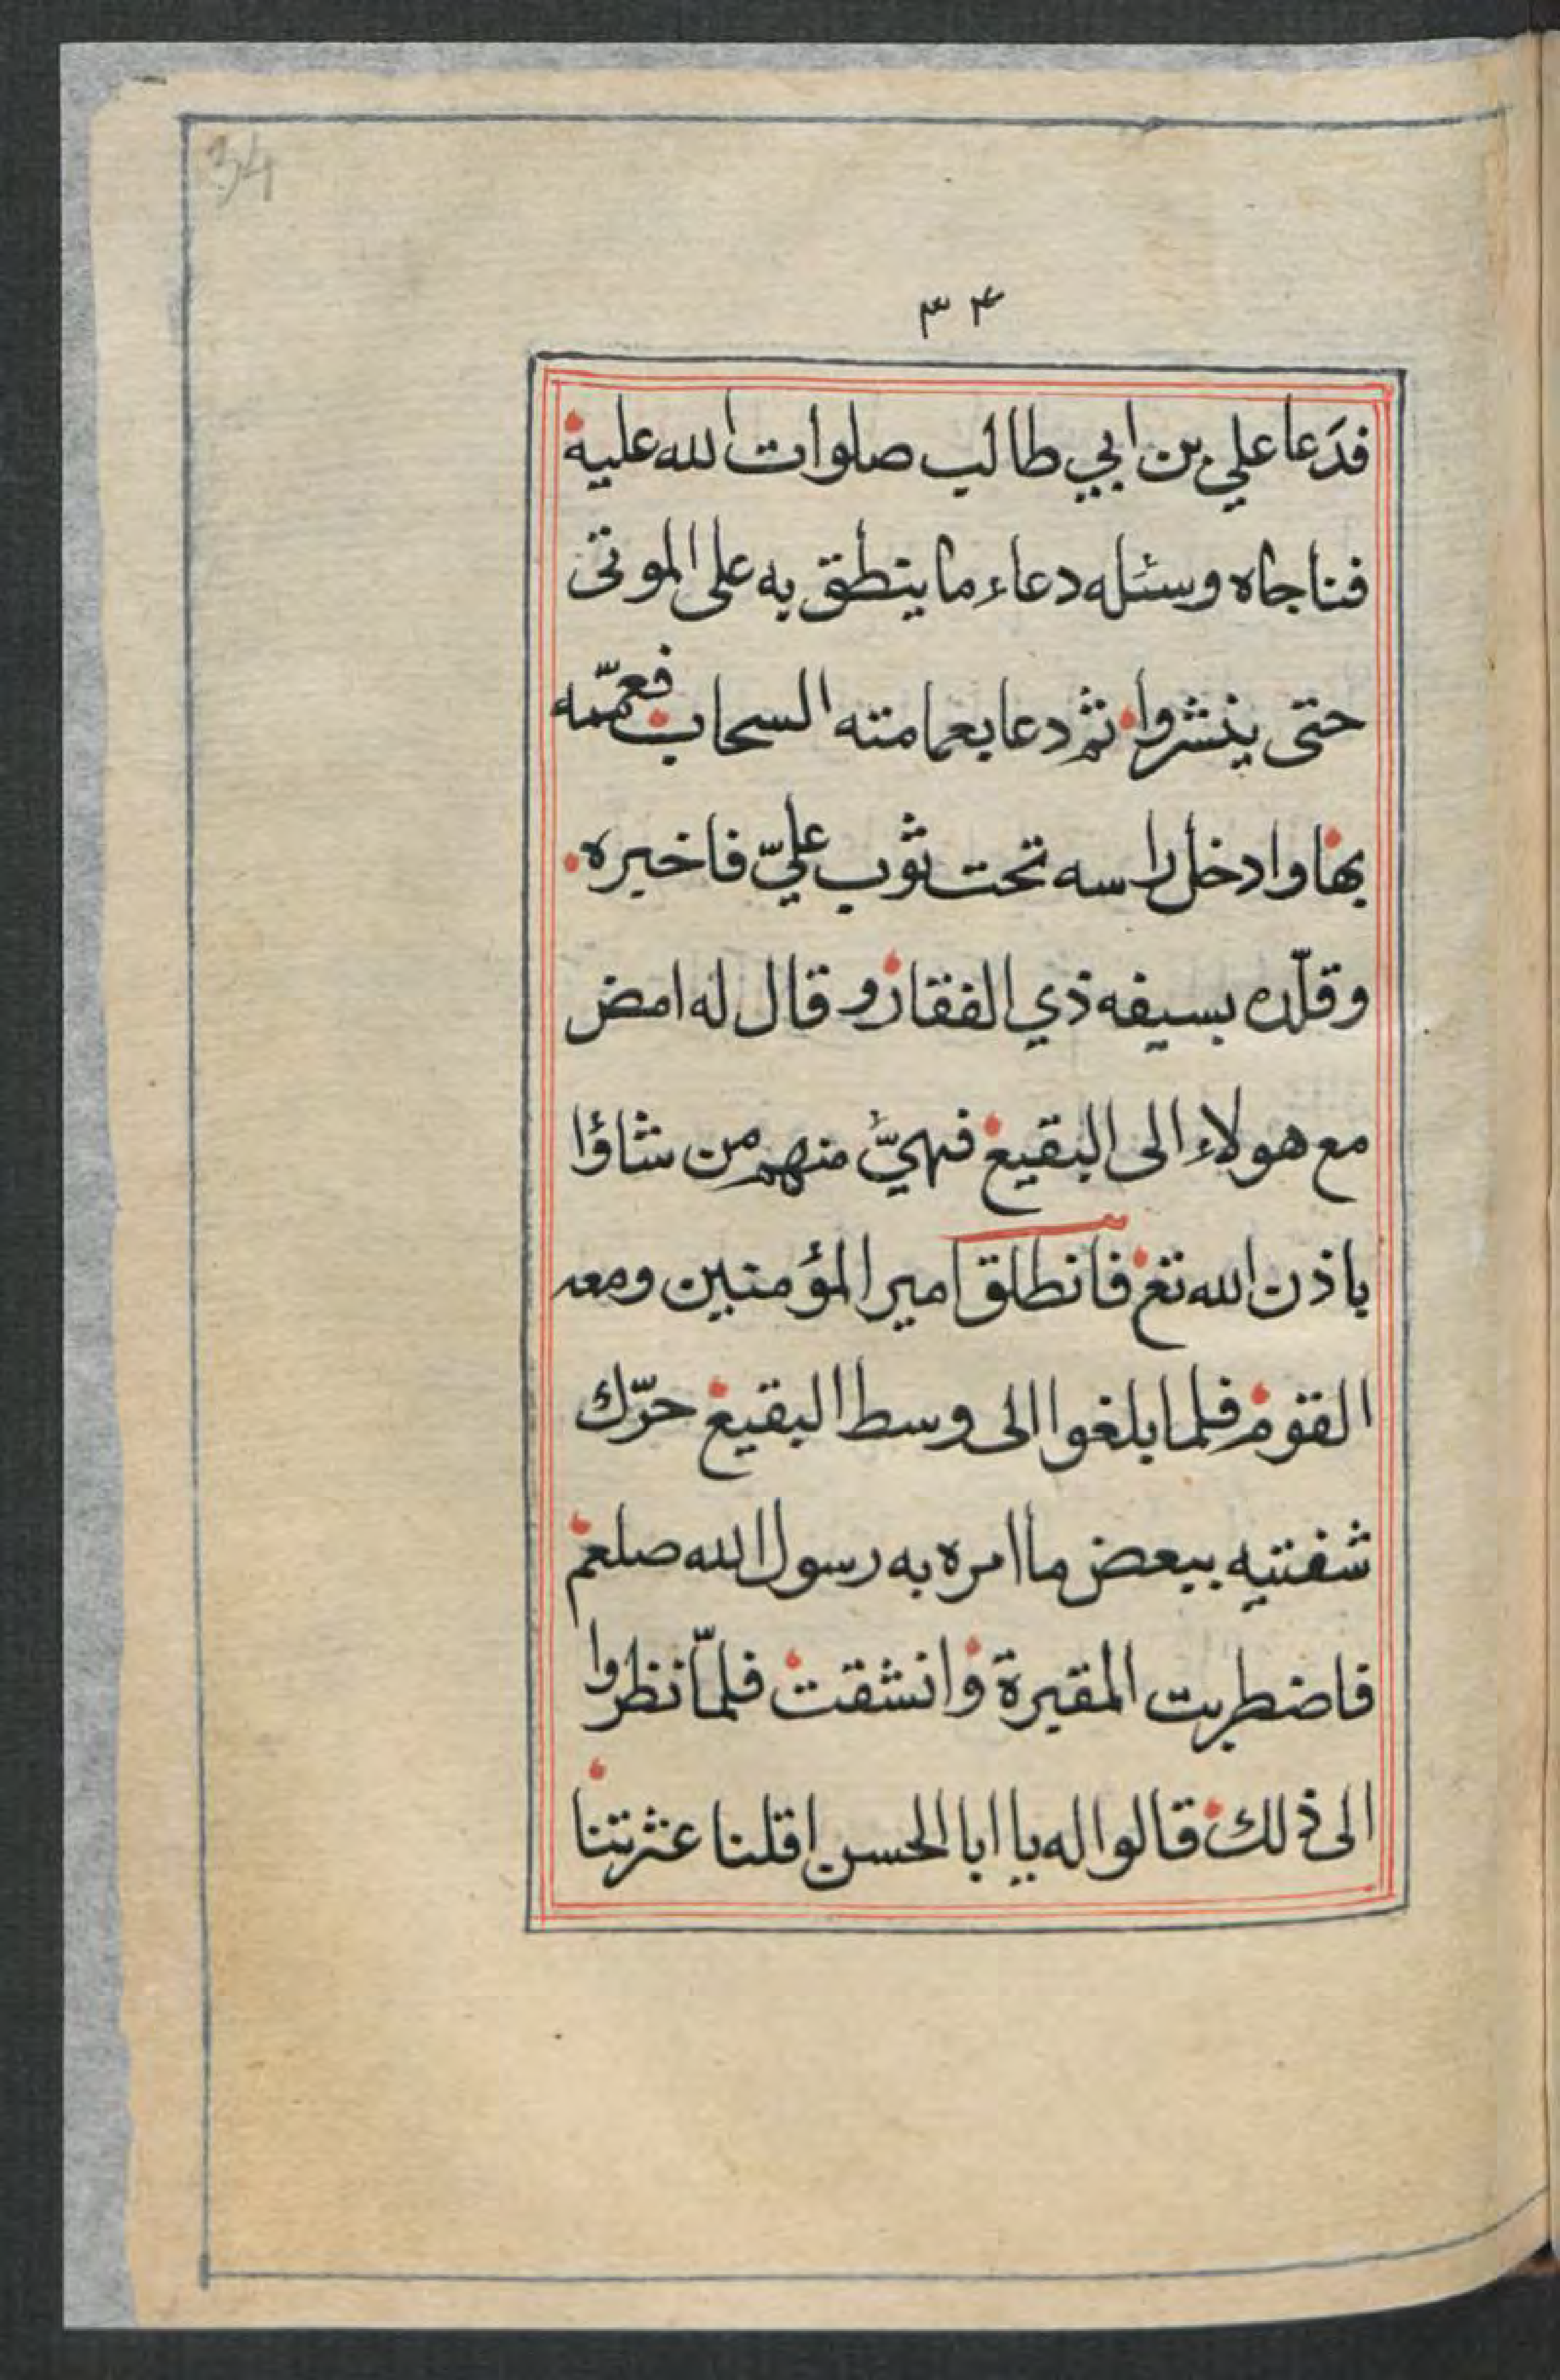 34
٣٤
فدَعا علي بن ابي طالب صلوات الله عليه
فناجاه وسئله دعاء ما ينطق به على الموتى
حتى ينشروا ثم دعا بعمامته السحاب فعمّمه
بها وادخل راسه تحت ثوب عليّ فاخبره
وقلّده بسيفه ذي الفقار وقال له امض
مع هولاء الى البقيع فهيّئ منهم من شاؤا
باذن الله تع فانطلق امير المؤمنين ومعه
القوم فلما بلغوا الى وسط البقيع حرّك
شفتيه ببعض ما امره به رسول الله صلعم
فاضطربت المقبرة وانشقت فلمّا نظروا
الى ذلك قالوا له يا ابا الحسن اقلنا عثرتنا